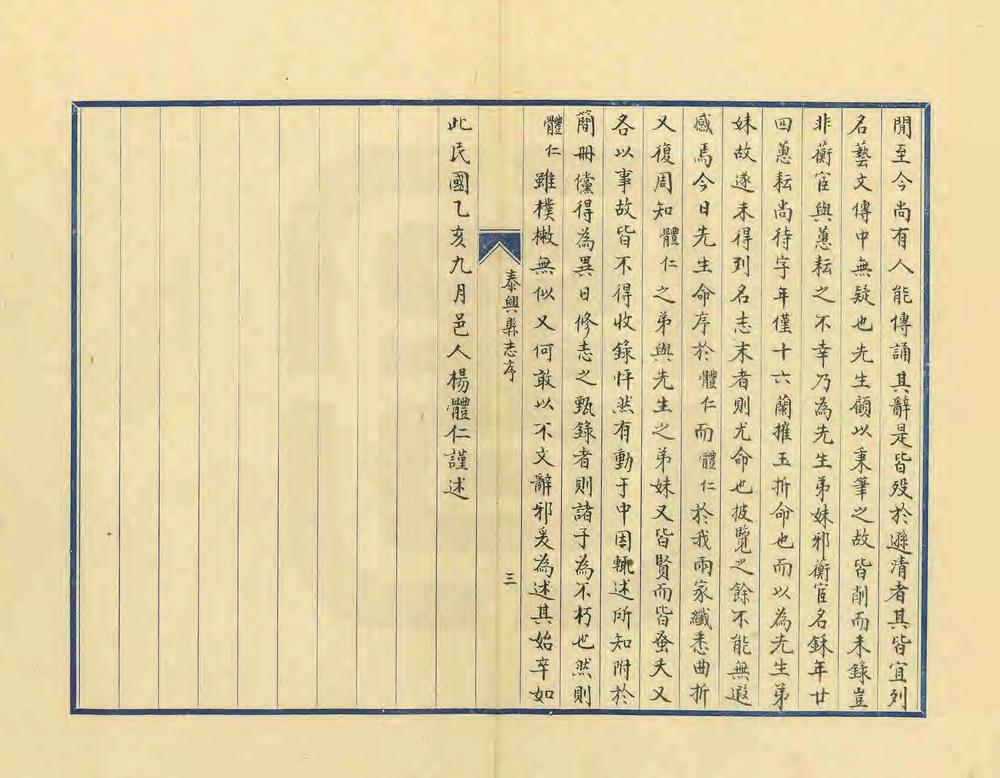 閒至今尚有人能傳誦其辭是皆歿於遜清者其皆宜列
名藝文傳中無疑也先生顧以秉筆之故皆削而未錄豈
非蘅宧與蕙耘之不幸乃為先生弟妹邪蘅宧名鉌年廿
四蕙耘尚待字年僅十六蘭摧玉折命也而以為先生弟
妹故遂未得列名志末者則尤命也披覽之餘不能無遐
感焉今日先生命序於體仁而體仁於我兩家纖悉曲折
又復周知體仁之弟與先生之弟妹又皆賢而皆蚤夭又
各以事故皆不得收錄怦然有動于中因輒述所知附於
簡冊儻得為異日修志之甄錄者則諸子為不朽也然則
體仁雖樸樕無似又何敢以不文辭邪爰為述其始卒如
泰興縣志序
三
此民國乙亥九月邑人楊體仁謹述